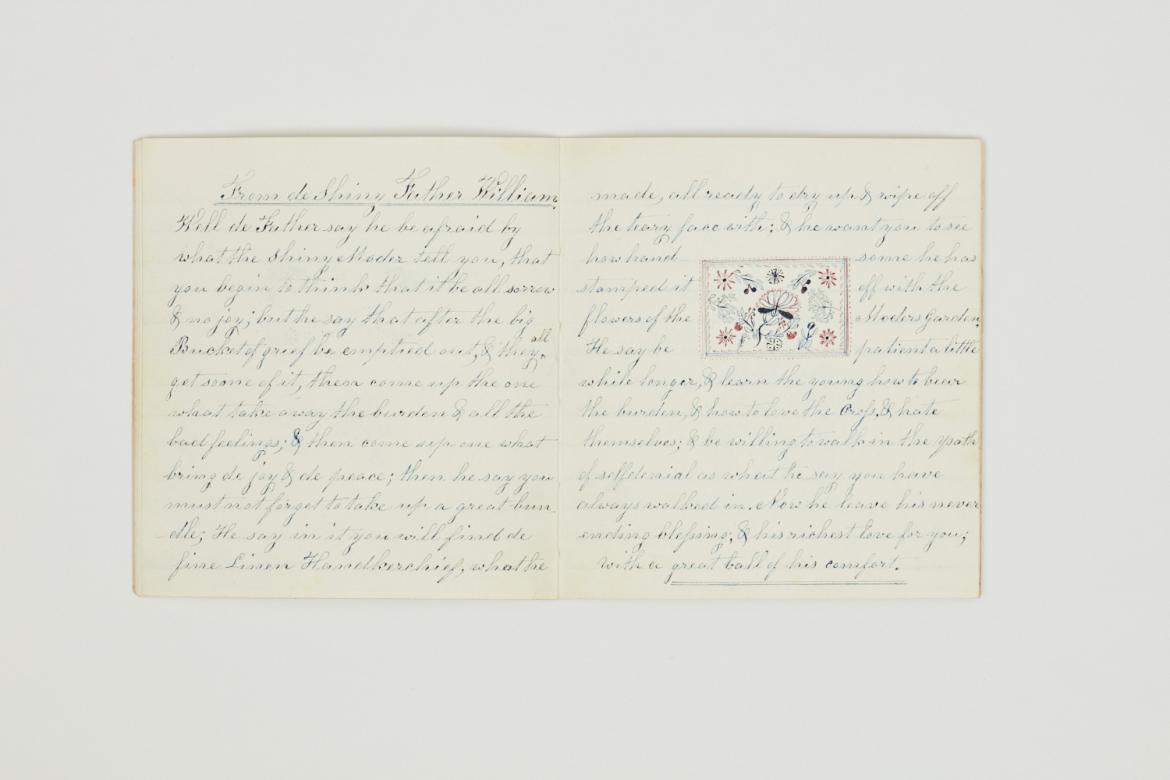 From de Shiny Futher William
Well de Futher say he be afraid by
what the Shiny Moder tell you, that
you begin to think that it be all sorrow
& no joy; but he say that after the big
Bucket of grief be emptied out, & they all
get some of it, then come up the one
what take away the burden & all the
bad feelings; & then come up one what
bring de joy & de peace; then he say you
must not forget to take up a great bun
dle; He say in it you will find de
fine Linen Handkerchief, what he
made, all ready to dry up & wipe off
the teary face with; & he want you to see
how hand some he has
stamped it off with the
flowers of the Moders Garden.
He say be patient a little
while longer, & learn the young how to bear
the burden, & how to love the Cross, & hate
themselves; & be willing to walk in the path
of selfdenial as what he say you have
always walked in. Now he leave his never
ending blessing; & his richest love for you;
with a great ball of his comfort.